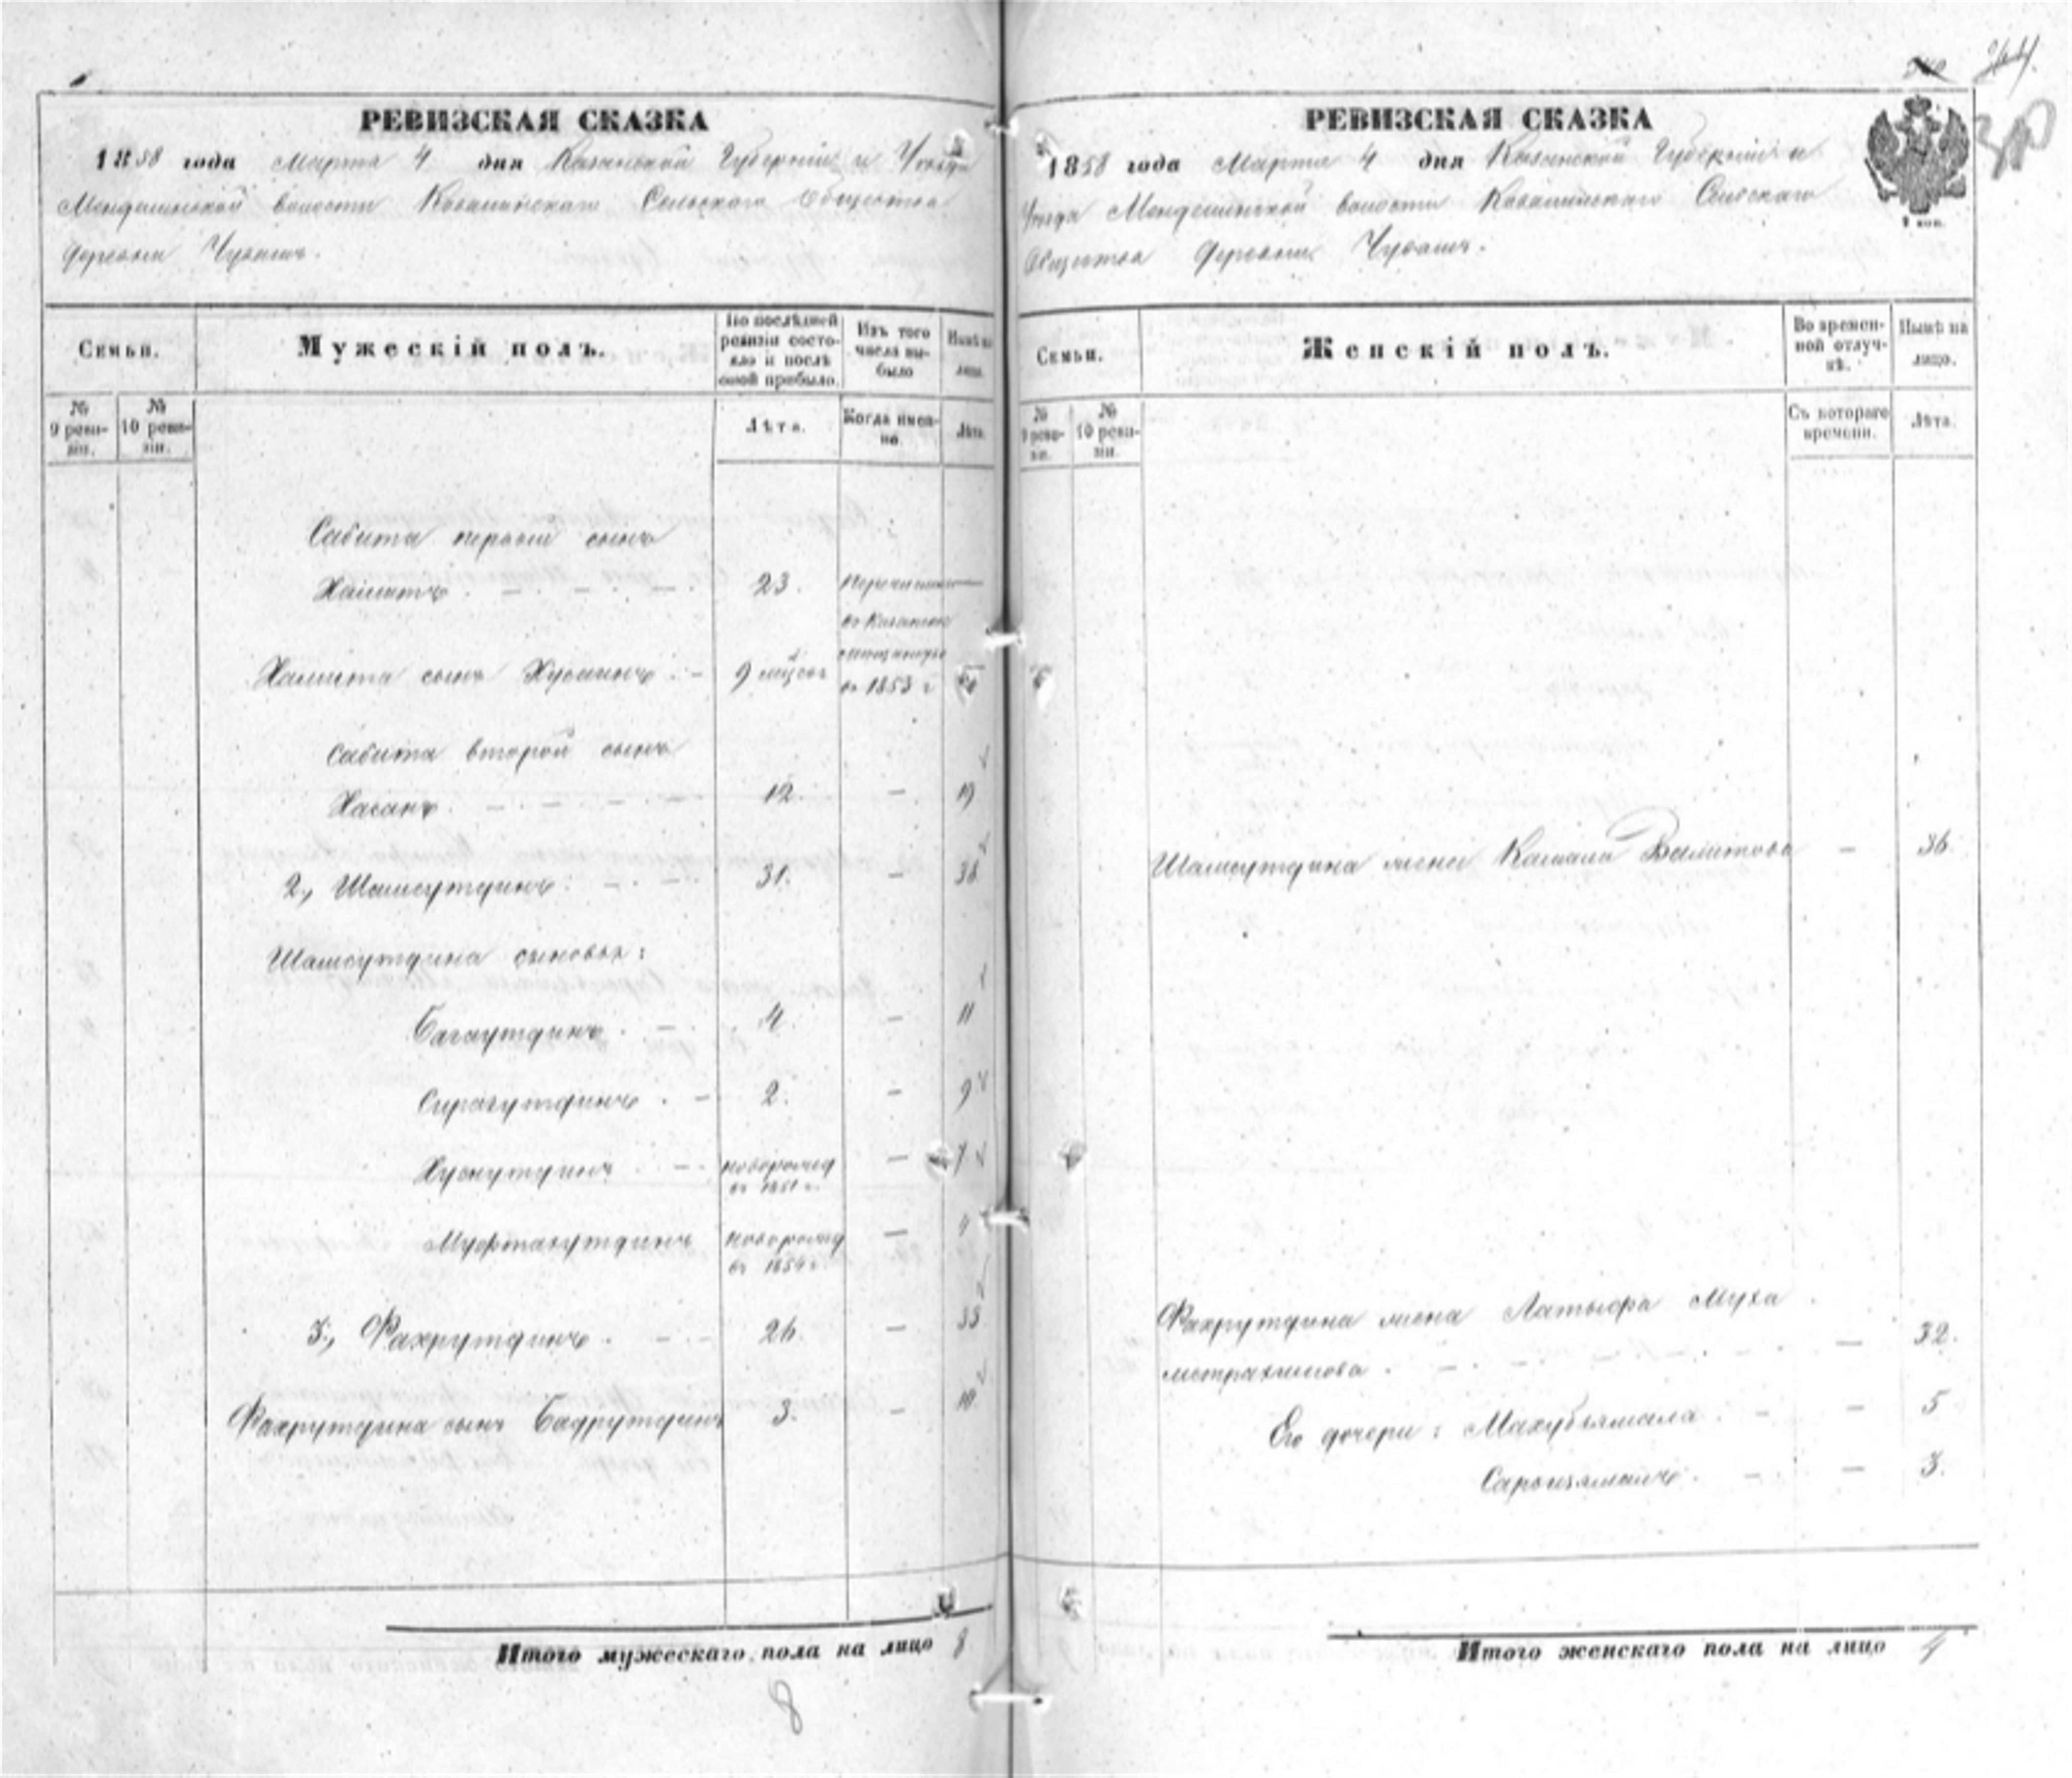 РЕВИЗСКАЯ СКАЗКА
1858 года Марта 4 дня Казанской Губернии и Уезда
Менделинской волости Сельскаго Общества
деревни
Семьи.
Мужескій полъ.
По послѣдней ревизіи состояло и послѣ оной прибыло.
Изъ того числа выбыло
Нынѣ на лицо.
№ 9 ревизіи.
№ 10 ревизіи.
Лѣта.
Когда именно.
Лѣта.
Сабита первый сынъ
Хамитъ 23. Перечислен
въ Казанск
въ 1853 г
Хамита сынъ 9 мѣсяц
Сабита второй сынъ
Хасанъ 12. — 19
2, Шамсутдинъ 31. — 38
Шамсутдина сыновья:
Багаутдинъ 4. — 11
Сирагутдинъ 2. — 9
Хуснутдинъ новорожд — 7
въ 1851 г.
Муфтахутдинъ новорожд — 4
въ 1854 г.
3, Фахрутдинъ 26. — 33
Фахрутдина сынъ Бадрутдинъ 3. — 10
Итого мужескаго пола на лицо 8
8
РЕВИЗСКАЯ СКАЗКА
1858 года Марта 4 дня Казанской Губерніи и
Уезда Менделинской волости Сельскаго
Общества деревни
Семьи.
Женскій полъ.
Во временной отлучкѣ.
Нынѣ на лицо.
№ 9 ревизіи.
№ 10 ревизіи.
Съ котораго времени.
Лѣта.
Шамсутдина жена Камала Валитова — 36
Фахрутдина жена Латыфа Муха
метрахимова — 32.
Его дочери: Махубзямала — 5
— 3.
Итого женскаго пола на лицо 4